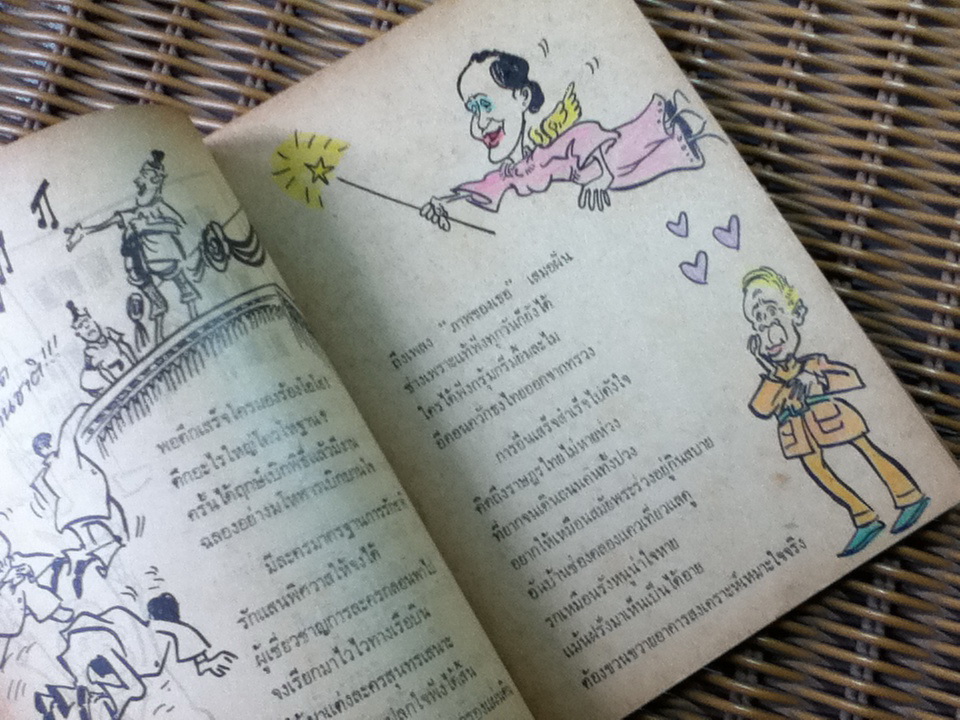 นชาติ!!!
พอตึกเสร็จใครมองร้องโอโฮ!
ตึกอะไรใหญ่โตไพฐานะ
ครั้นได้ฤกษ์เบิกพิธีแล้วมีงาน
ฉลองอย่างมโหฬารเบิกบาน
มีละครมาตรฐานการ
รักแสนพิศวาสให้จงได้
ผู้เชี่ยวชาญการละครกลอน
จงเรียกมาไวไวทางเรือบิน
มาแต่งละครสุนทรเสนาะ
ปลุกใจฟังได้สิ้น
ถึงเพลง "ภาพของเธอ" เสมอฝัน
ช่างเพราะแท้ฟังทุกวันก็ยังได้
ใครได้ฟังกรุ้มกริ่มอิ่มละไม
อีตอนควักธงไทยออกจากทรวง
การอื่นเสร็จสำเร็จไปดังใจ
คิดถึงราษฎรไทยไม่หายห่วง
ที่ยากจนเดินถนนด้นทั้งปวง
อยากให้เหมือนสมัยพระร่วงอยู่กินสบาย
อันบ้านช่องคลองแควเที่ยวแลดู
รกเหมือนรังหนูน่าใจหาย
แม้นฝรั่งมาเห็นเป็นได้อาย
ต้องขวนขวายอาคารสงเคราะห์เหมาะใจจริง